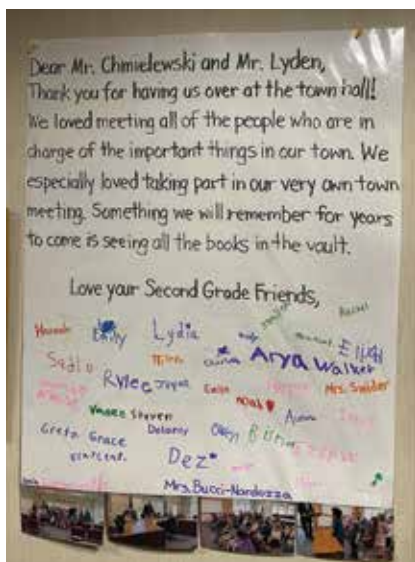 Dear Mr. Chmielewski and Mr. Lyden,
Thank you for having us over at the town hall!
We loved meeting all of the people who are in
charge of the important things in our town. We
especially loved taking part in our very own town
meeting. Something we will remember for years
to come is seeing all the books in the vault.
Love your Second Grade Friends,
Hannah Emily Lydia
Arya Walker
Rylee Mrs. Snider
Noah
Steven
Greta Grace Delaney
Vincent
Dez
Mrs. Bucci-Nardozza